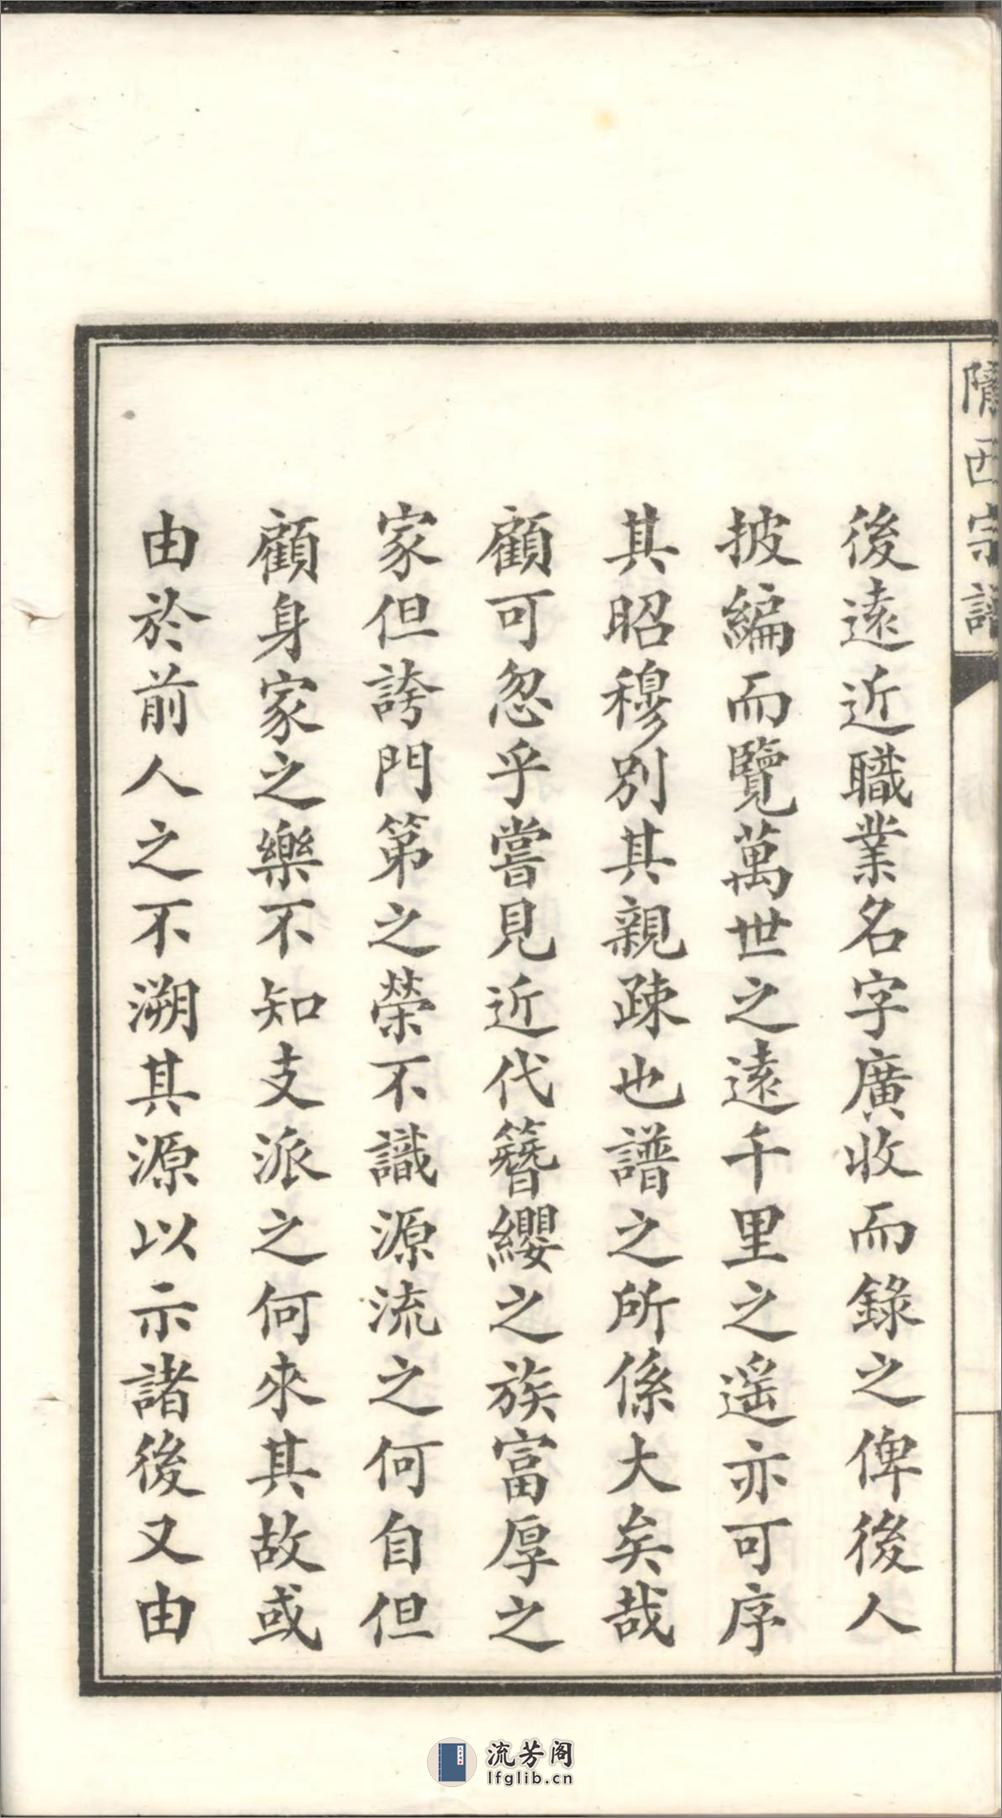 隴西宗譜
後遠近職業名字廣收而錄之俾後人
披編而覽萬世之遠千里之遥亦可序
其昭穆別其親疎也譜之所係大矣哉
顧可忽乎嘗見近代簪纓之族富厚之
家但誇門第之榮不識源流之何自但
顧身家之樂不知支派之何來其故或
由於前人之不溯其源以示諸後又由
流芳阁
lfglib.cn